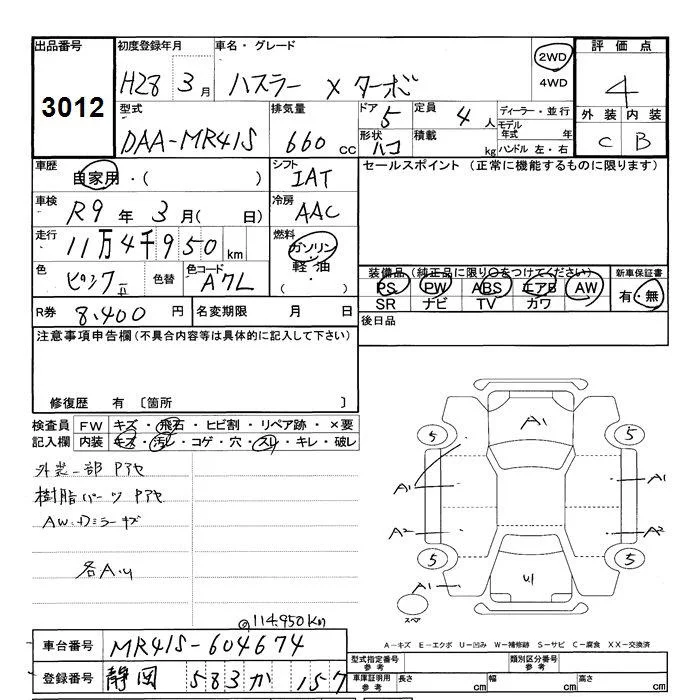 出品番号 初度登録年月 車名・グレード 評価点
3012 H28 3月 ハスラー Xターボ 2WD 4WD 4
型式 排気量 ドア 定員 ディーラー・並行 外装 内装
DAA-MR41S 660cc 5 4人 モデル年式 年 C B
形状 ハコ 積載 kg ハンドル 左・右
車歴 自家用・( ) シフト IAT セールスポイント (正常に機能するものに限ります)
車検 R9年 3月( 日) 冷房 AAC
走行 11万4千950km 燃料 ガソリン 軽・油 ・( )
色 ピンク 色替 色コード A7L
装備品(純正品に限り○をつけてください) 新車保証書
PS PW ABS エアB AW 有・無
SR ナビ TV カワ
R券 8,400円 名変期限 月 日 後日品
注意事項申告欄(不具合内容等は具体的に記入して下さい)
修復歴 有 〔箇所 〕
検査員 FW キズ・飛石・ヒビ割・リペア跡・×要
記入欄 内装 キズ・汚レ・コゲ・穴・スリ・キレ・破レ
外装一部 Pアセ
樹脂パーツ Pアセ
AW・Dミラーキズ
各A.U
@114,950km
A1
5 5
A1 A1
A2 A2
5 5
A1 U1
スペア
A-キズ E-エクボ U-凹み W-補修跡 S-サビ C-腐食 XX-交換済
車台番号 MR41S-604674
型式指定番号 参考 類別区分番号 参考
登録番号 静岡 583 か 157
車庫証明用 参考 長さ cm 幅 cm 高さ cm